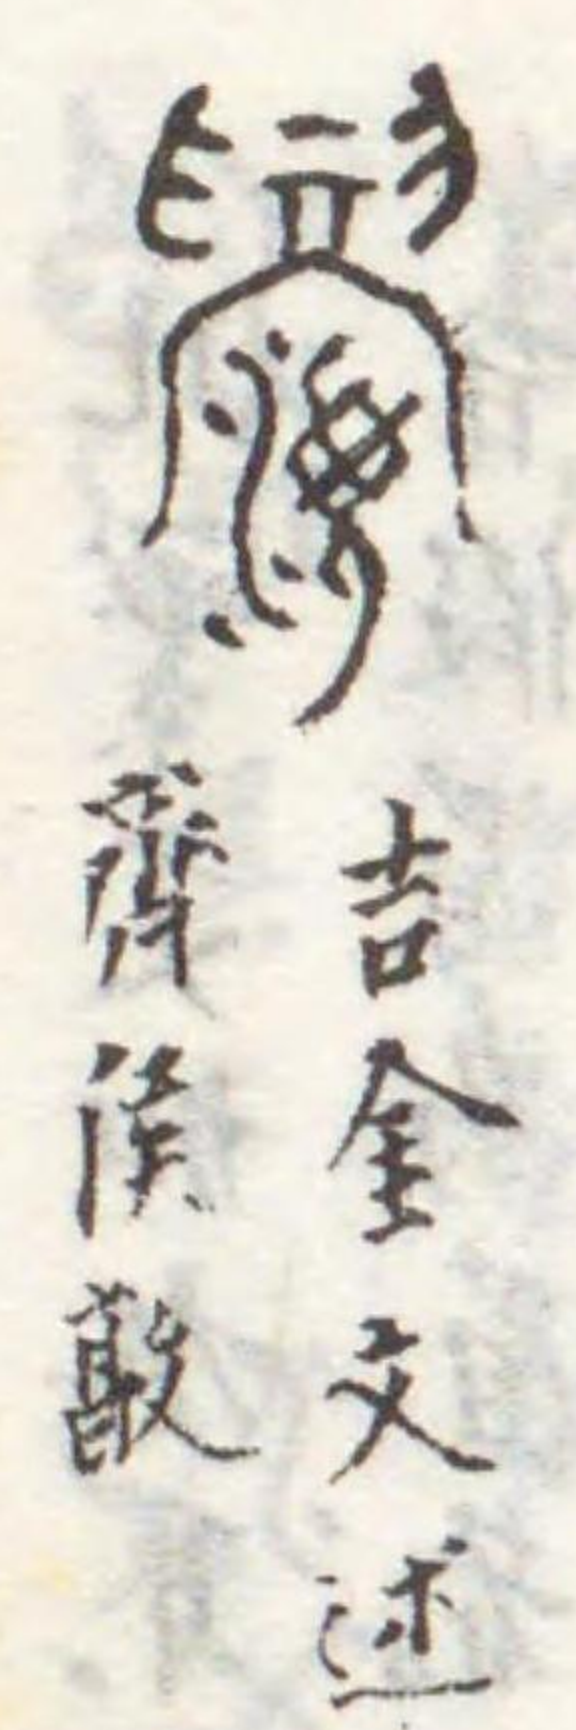 吉金文述
齊侯敦